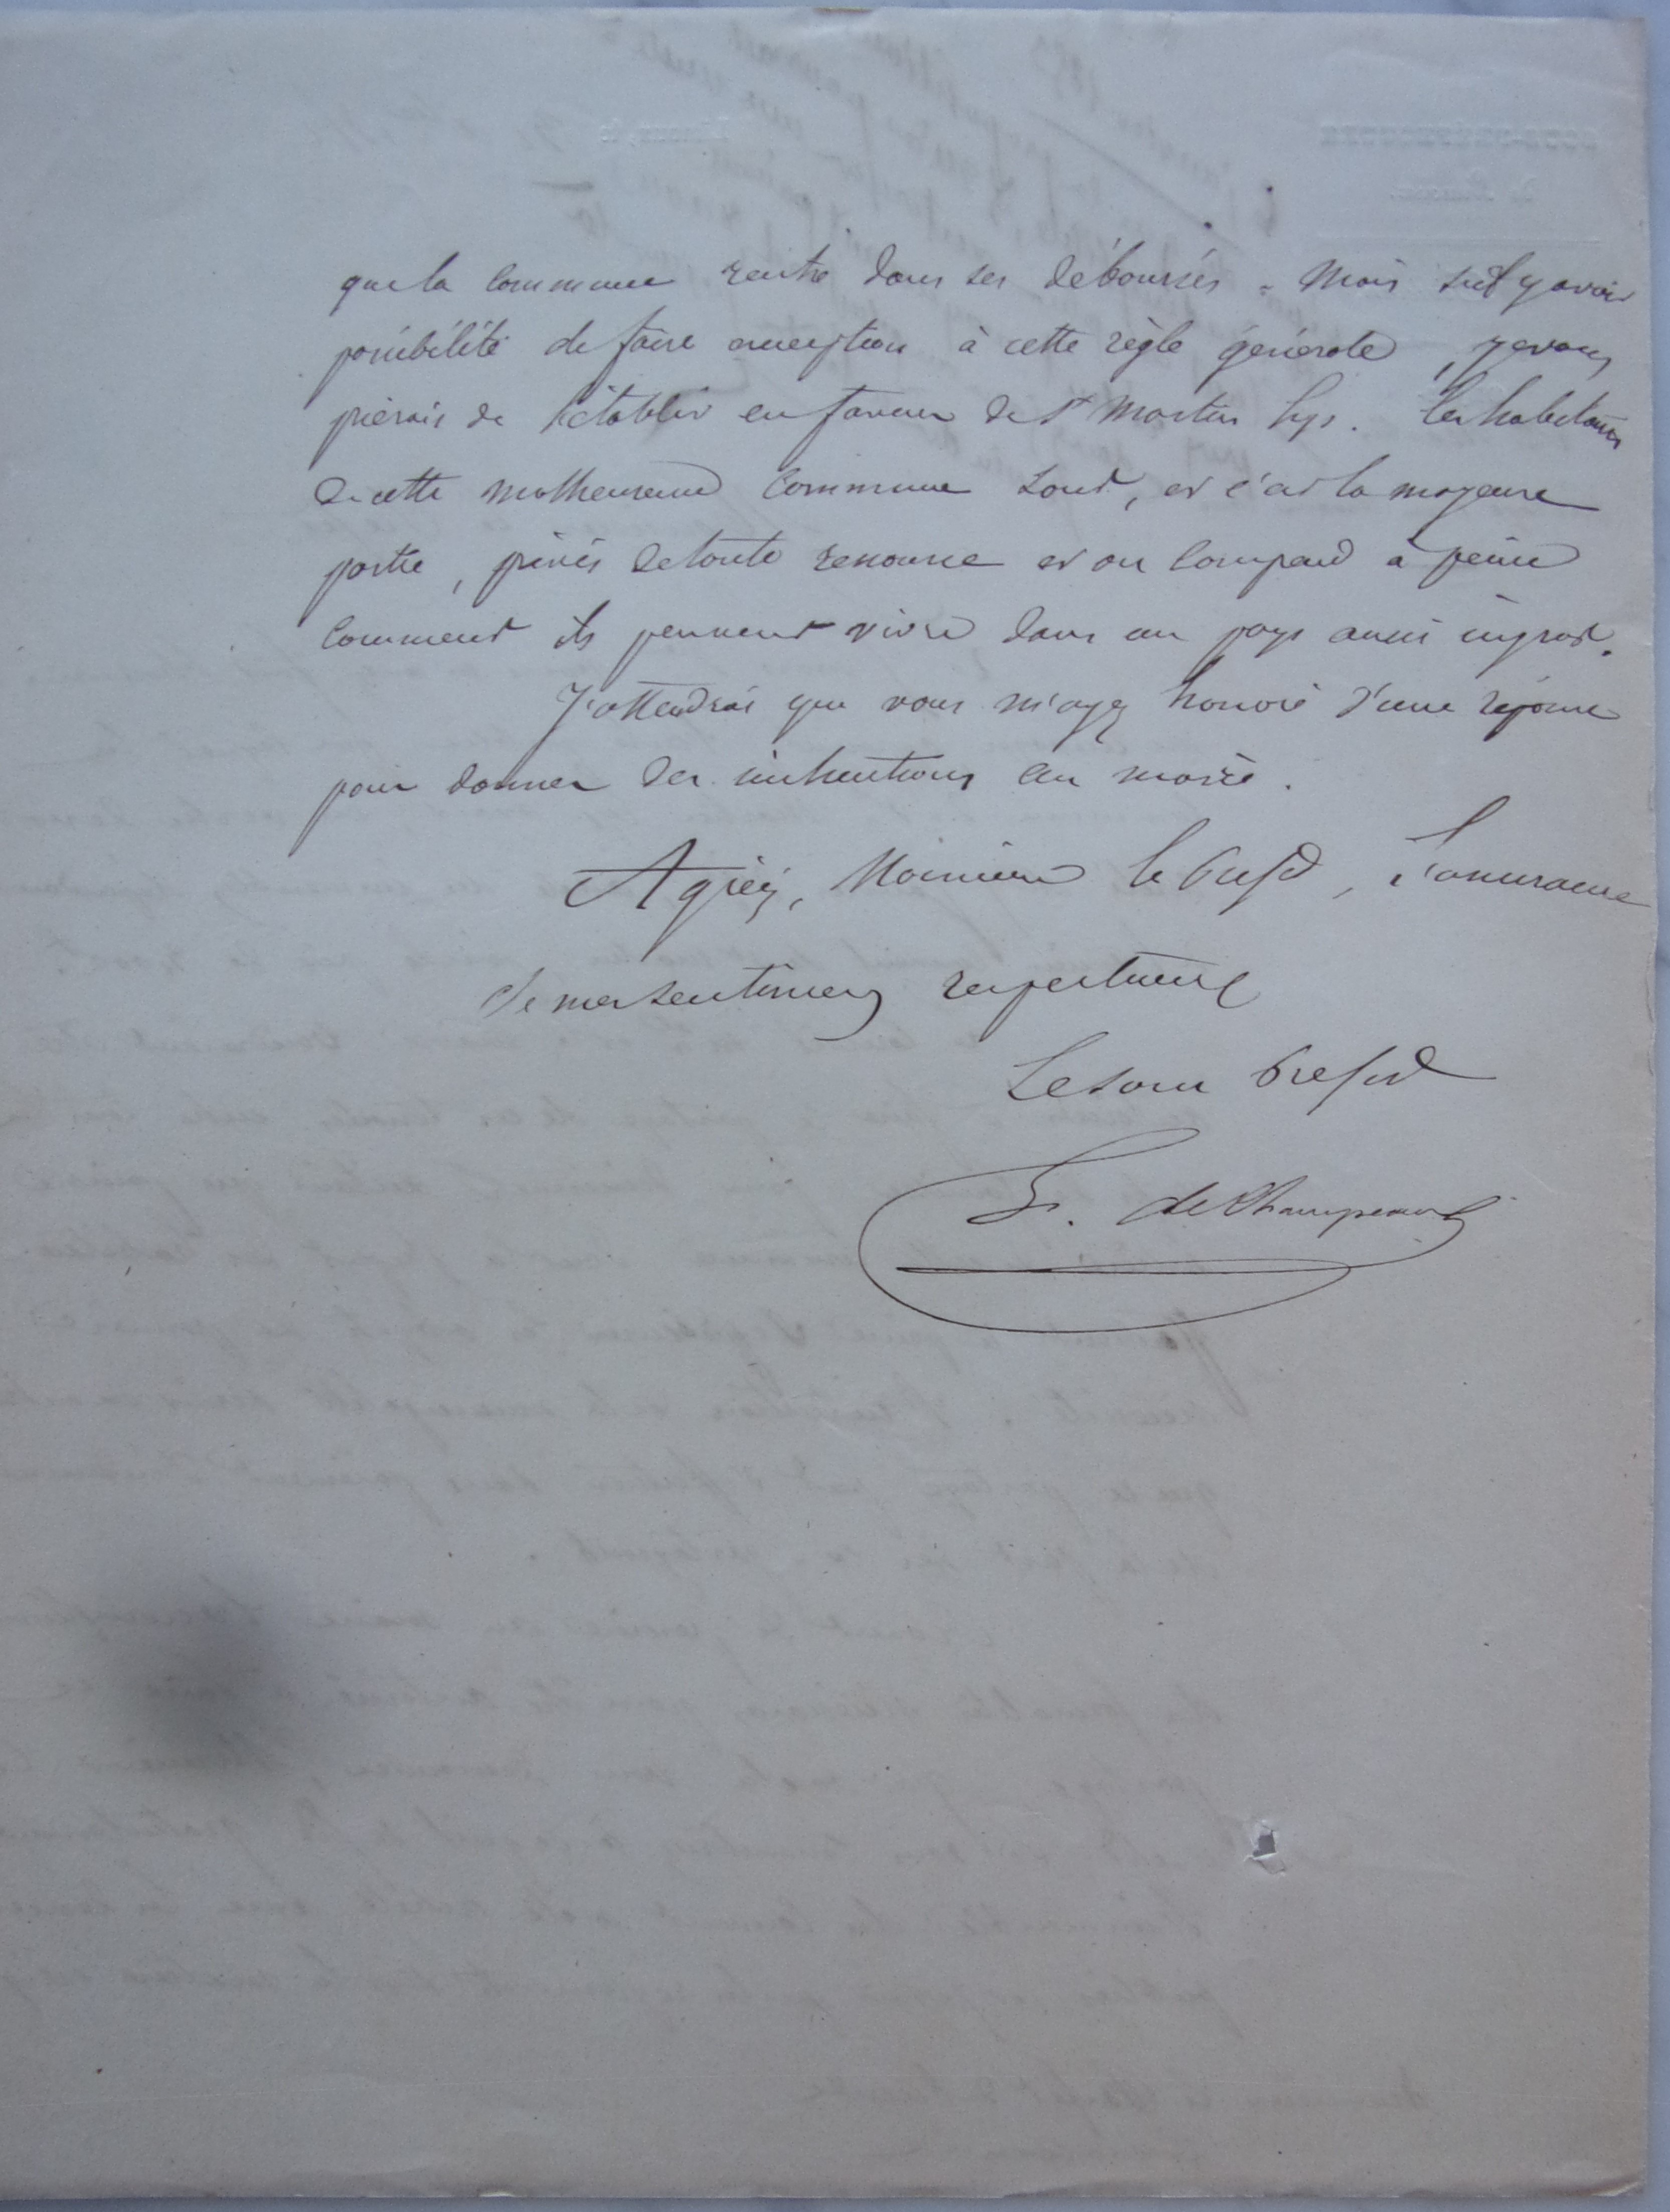 que la commune rentre dans ses déboursés. Mais s'il y avait
possibilité de faire exception à cette règle générale, je vous
prierais de l'établir en faveur de St Martin Lys. Les habitans
de cette malheureuse commune sont, et c'est la majeure
partie, privés de toute ressource et on comprend à peine
comment ils peuvent vivre dans un pays aussi ingrat.
J'attendrai que vous m'ayez honoré d'une réponse
pour donner des instructions au maire.
Agréez, Monsieur le Préfet, l'assurance
de mes sentimens respectueux
Le sous Préfet
de Champeaux